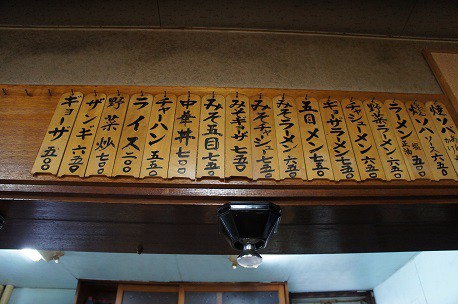 焼ソバ
焼ソバ ソース 六五〇
ラーメン 正油 塩 六五〇
野菜ラーメン 七五〇
チャシューメン 七五〇
ギョウザラーメン 七五〇
五目メン 七五〇
みそラーメン 六五〇
みそチャシュー 七五〇
みそギョウザ 七五〇
みそ五目 七五〇
中華丼 七〇〇
チャーハン 五五〇
ライス 二〇〇
野菜炒 七〇〇
ザンギ 六五〇
ギョーザ 五〇〇